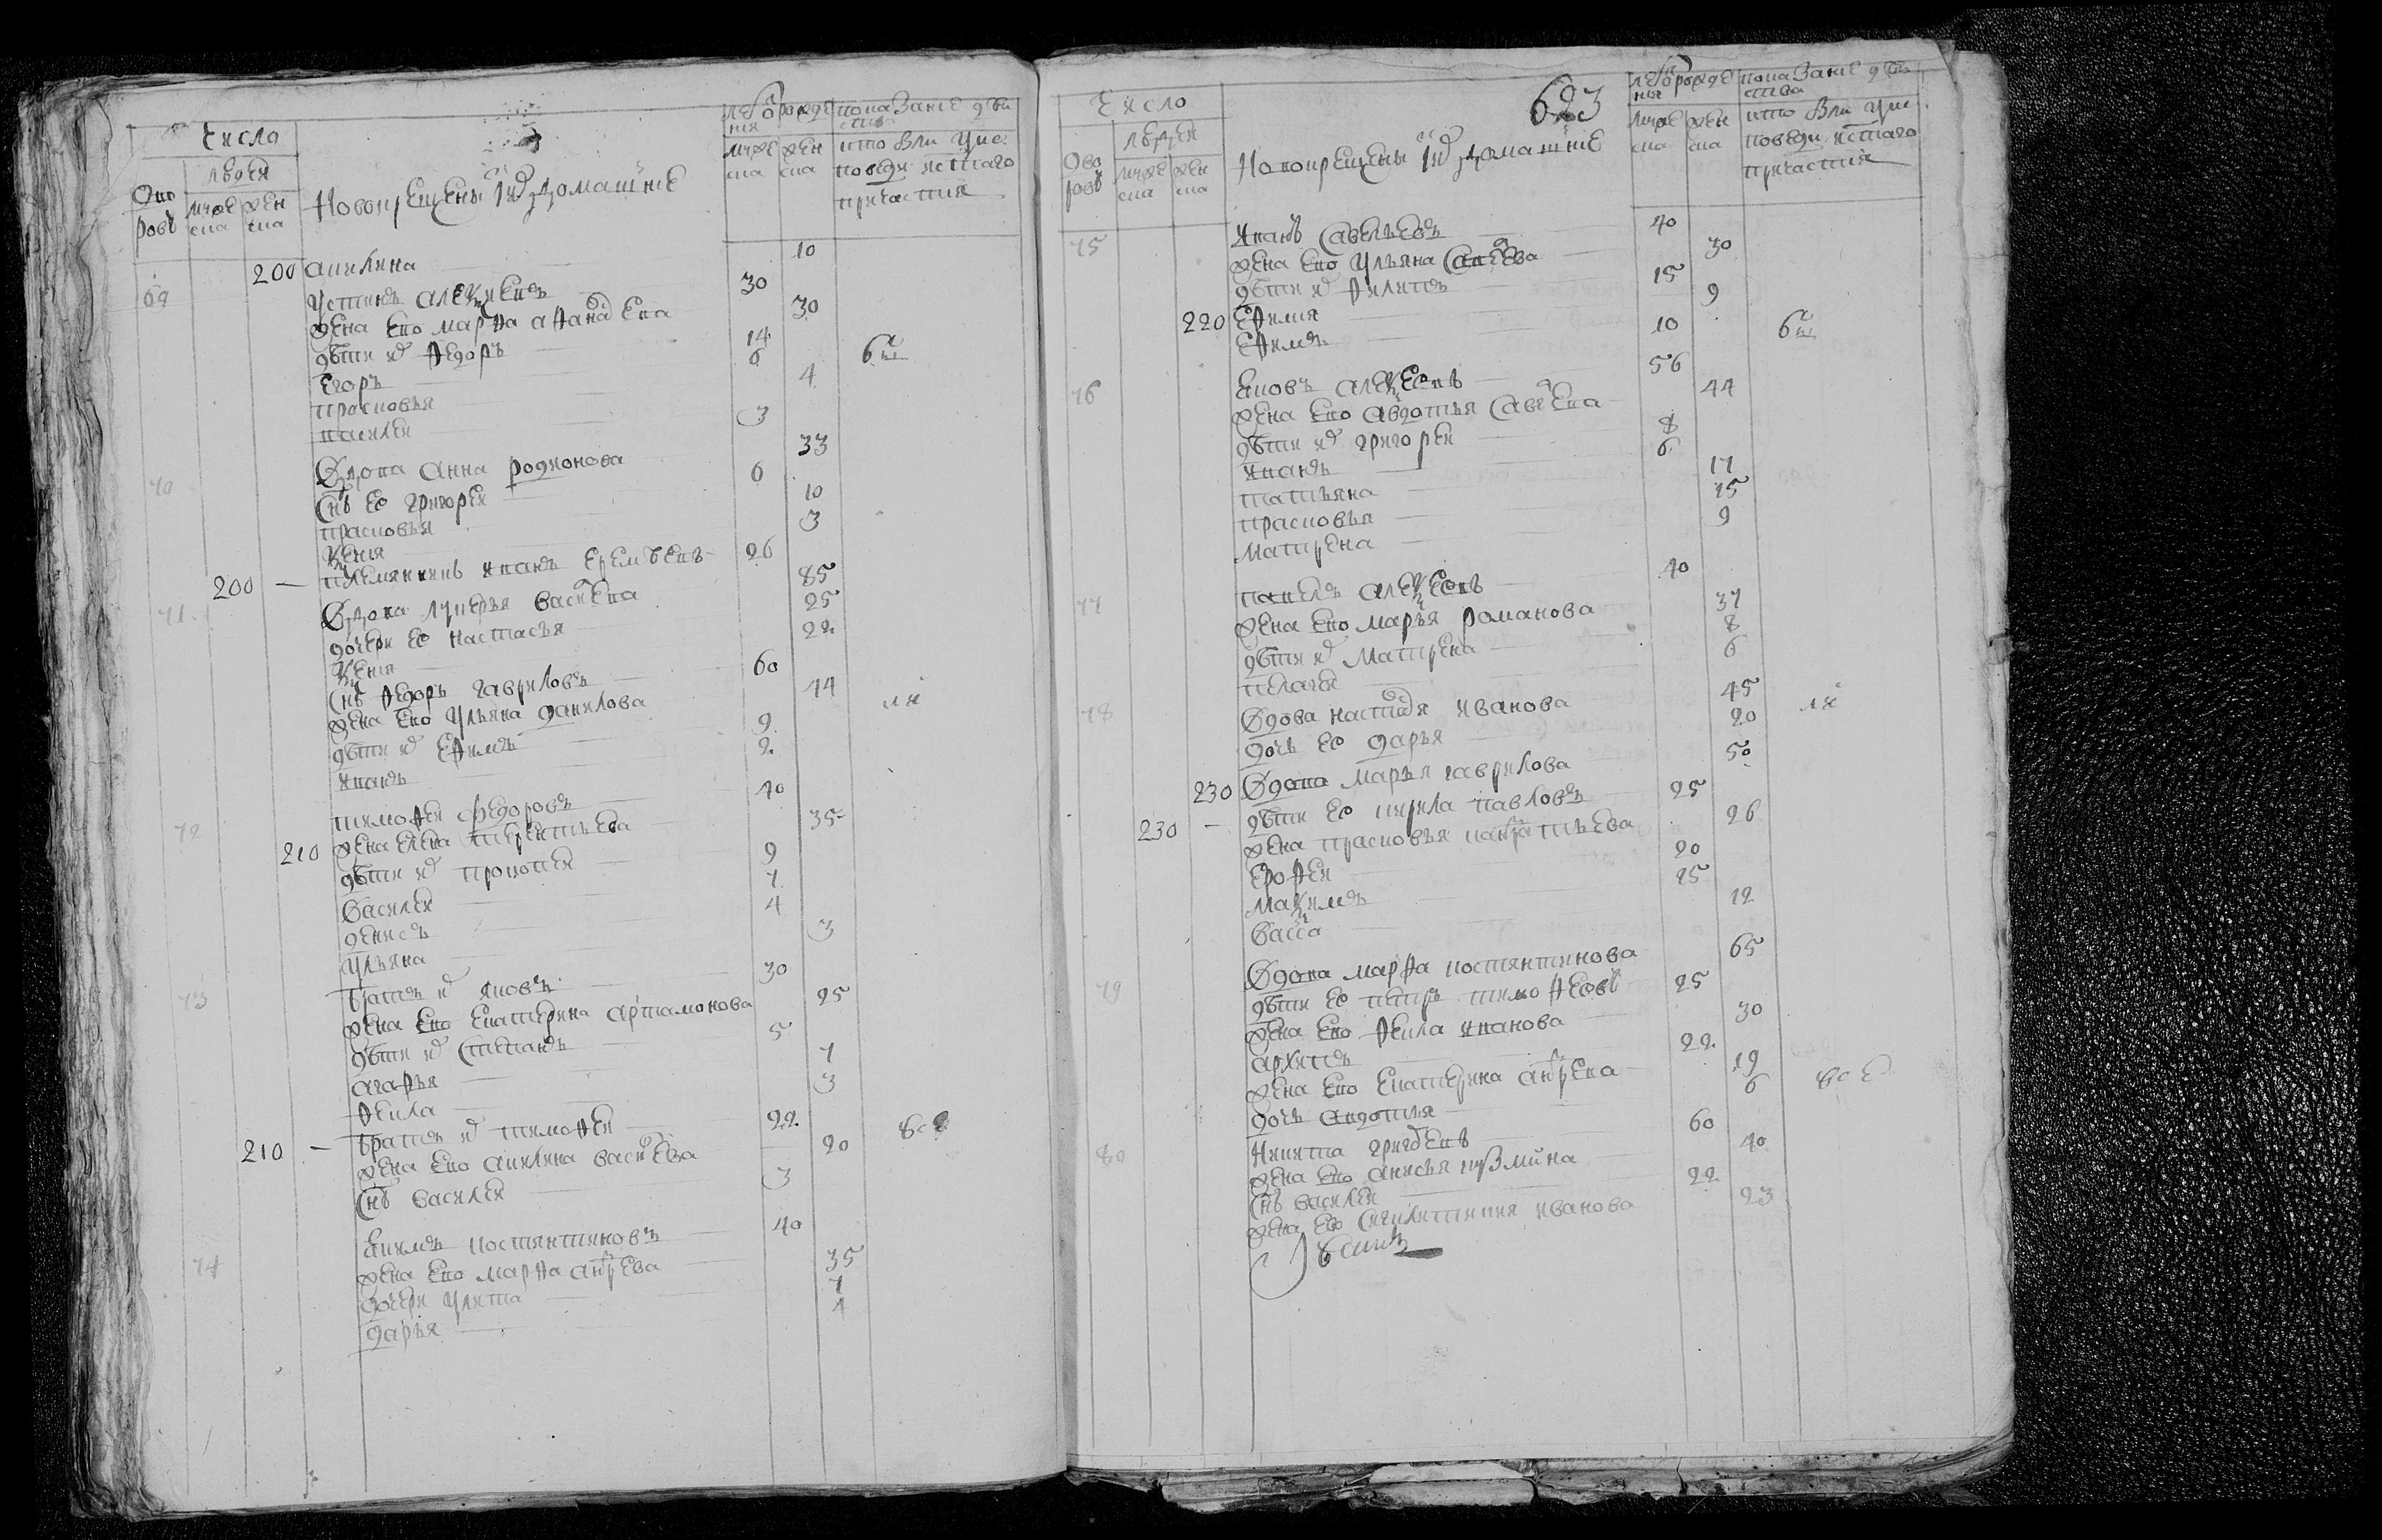 число
людей
дворовъ
мужеска
женска
Новокрещены и ихъ домашние
лета рождения
мужеска
женска
показание действа
кто были у исповеди и святаго причастия
200 акилина 10
69 устинъ алексеевъ 30
жена ево марфа афанасева 30
дети их федоръ 14
егоръ 6
прасковья 4
василей 3
были
70 вдова анна родионова 33
снъ ее григорей 6
прасковья 10
ксения 3
200 — племянникъ иванъ еремеевъ 26
71 вдова лукерья васильева 85
дочери ее настасья 25
ксения 22
снъ федоръ гавриловъ 60
жена ево ульяна данилова 44
дети их ефимъ 9
иванъ 2
72 тимофей федоровъ 40
210 жена елена терентьева 35
дети их прокопей 9
василей 7
денисъ 4
ульяна 3
73 братъ их яковъ 30
жена ево екатерина артамонова 25
дети их степанъ 5
агафья 7
фекла 3
210 — братъ их тимофей 22
жена ево акилина васильева 20
снъ василей 3
все
74 екимъ костянтиновъ 40
жена ево марфа андреева 35
дочери улита 7
дарья 4
623
число
людей
дворовъ
мужеска
женска
Новокрещены и ихъ домашние
лета рождения
мужеска
женска
показание действа
кто были у исповеди и святаго причастия
75 иванъ савельевъ 40
жена ево ульяна 30
дети их филипъ 15
220 ефимия 9
ефимъ 10
были
76 яковъ алексеевъ 56
жена ево авдотья савельева 44
дети их григорей 8
иванъ 6
татьяна 17
прасковья 15
матрена 9
77 павелъ алексеевъ 40
жена ево марья романова 37
дети их матрена 8
пелагея 6
78 вдова настасья иванова 45
дочь ее дарья 20
230 вдова марья гаврилова 50
230 — дети ее кирила павловъ 25
жена прасковья панкратьева 26
ерофей 20
максимъ 15
васса 12
79 вдова марфа костянтинова 65
дети ее петръ тимофеевъ 25
жена ево фекла иванова 30
архипъ 22
жена ево екатерина андреева 19
дочь авдотья 6
все
80 никита григорьевъ 60
жена ево анисья кузмина 40
снъ василей 22
жена ево иванова 23